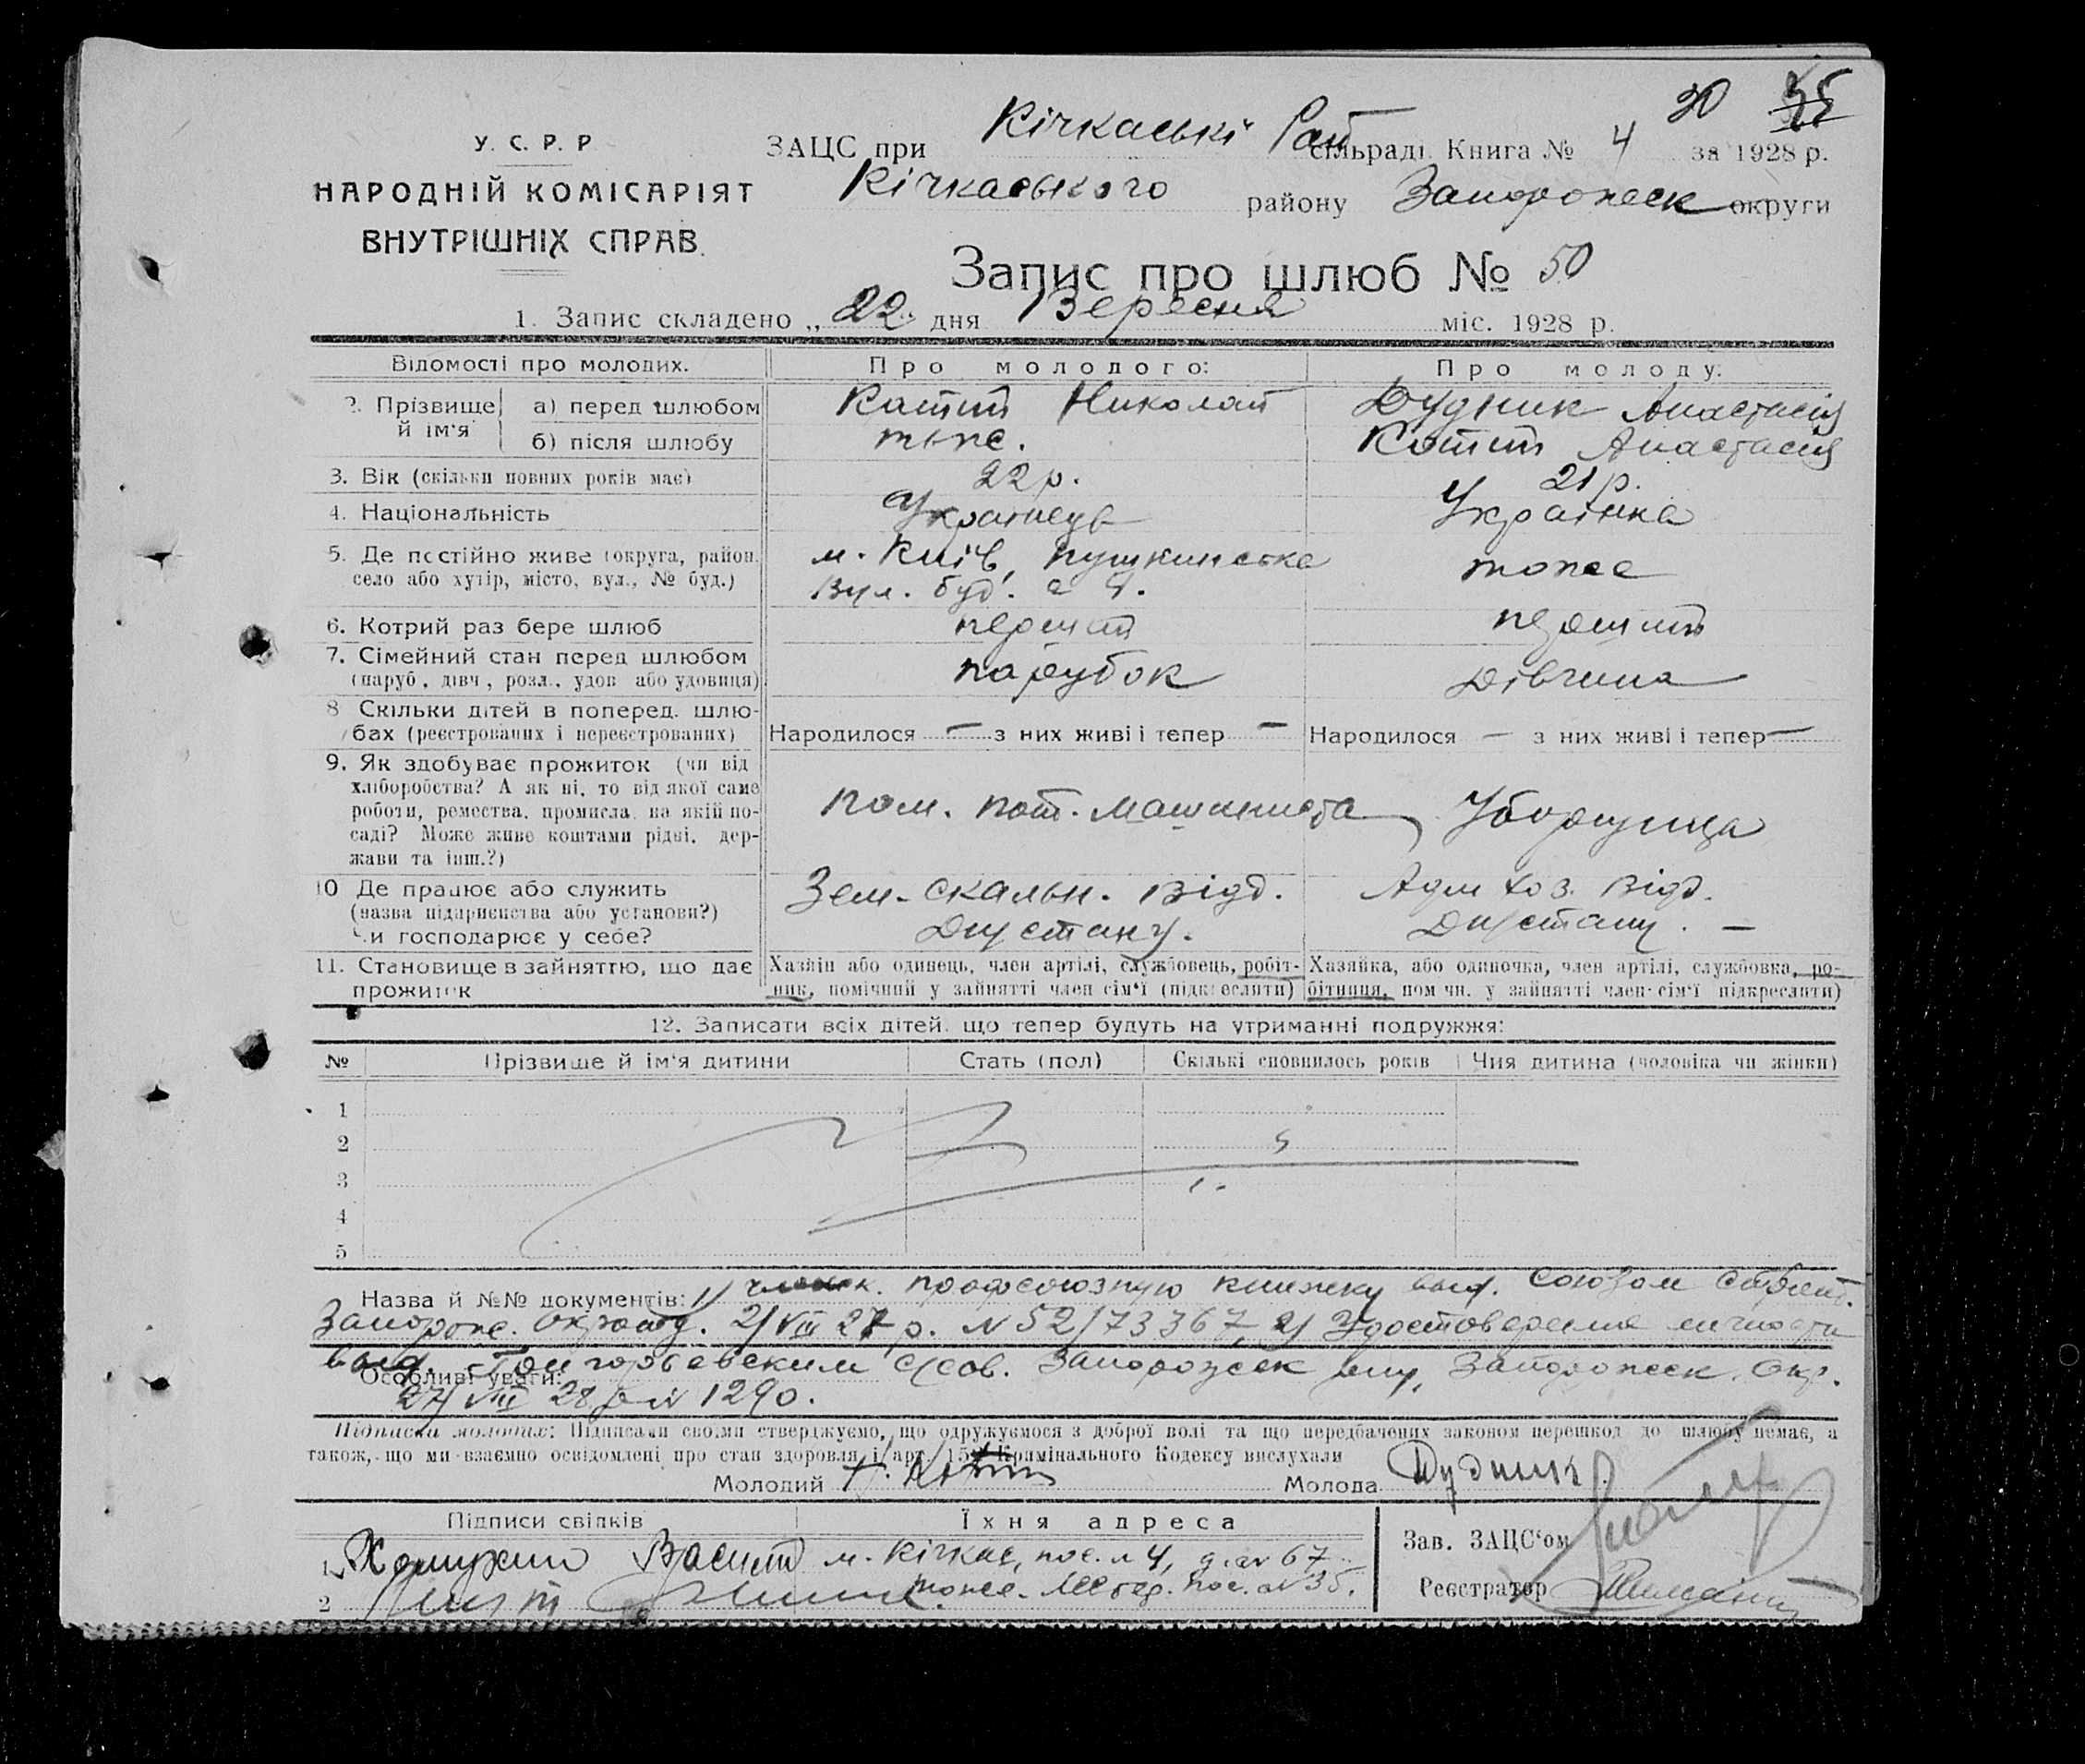 30 35
У. С. Р. Р
НАРОДНІЙ КОМІСАРІЯТ
ВНУТРІШНІХ СПРАВ.
ЗАЦС при Кічкаські Рай сільраді. Книга № 4 за 1928 р.
Кічкаського району Запорожск округи
Запис про шлюб № 50
1. Запис складено „ 22 дня Вересня міс. 1928 р.
Відомості про молодих. Про молодого: Про молоду:
2. Прізвище й ім'я а) перед шлюбом Николай Дудник Анастасія
б) після шлюбу Анастасія
3. Вік (скільки повних років має) 22 р. 21 р.
4. Національність Українець Українка
5. Де постійно живе (округа, район, м. Київ, Пушкинська тоже
село або хутір, місто, вул., № буд.) вул. буд.
6. Котрий раз бере шлюб перший перший
7. Сімейний стан перед шлюбом парубок Дівчина
(паруб., дівч., розл., удов або удовиця)
8 Скільки дітей в поперед. шлю-
бах (реєстрованих і нереєстрованих) Народилося — з них живі і тепер — Народилося — з них живі і тепер —
9. Як здобуває прожиток (чи від
хліборобства? А як ні, то від якої саме
роботи, ремества, промисла, на якій по- пом. машиниста Уборщица
саді? Може живе коштами рідні, дер-
жави та інш.?)
10 Де працює або служить Зем-скальн. відд. Адм хоз. відд.
(назва підприємства або установи?) Днустану. —
Чи господарює у себе?
11. Становище в зайняттю, що дає Хазяїн або одинець, член артілі, службовець, робіт- Хазяйка, або одиночка, член артілі, службовка, ро-
прожиток ник, помічний у зайнятті член сім'ї (підкреслити) бітниця, пом чн. у зайнятті член сім'ї підкреслити)
12. Записати всіх дітей, що тепер будуть на утриманні подружжя:
№ Прізвище й ім'я дитини Стать (пол) Скількі сповнилось років Чия дитина (чоловіка чи жінки)
1
2
3
4
5
Назва й №№ документів: 1/ профсоюзную книжку выд. Союзом
2/VIII 27 р. N 52/73367, 2/ Удостоверение личности
выд. с/сов. Запорожск Окр.
Особливі уваги:
27/VIII 28 р N 1290.
Підписка молодих: Підписами своїми стверджуємо, що одружуємося з доброї волі та що передбачених законом перешкод до шлюбу немає, а
також, що ми взаємно освідомлені про стан здоровля і арт. 154 Крамінального Кодексу вислухали
Молодий Н. Молода Дудник
Підписи свідків Їхня адреса
1 м. Кічкас, пос. N 4, 67
2 тоже. пос. N 35.
Зав. ЗАЦС'ом
Реєстратор